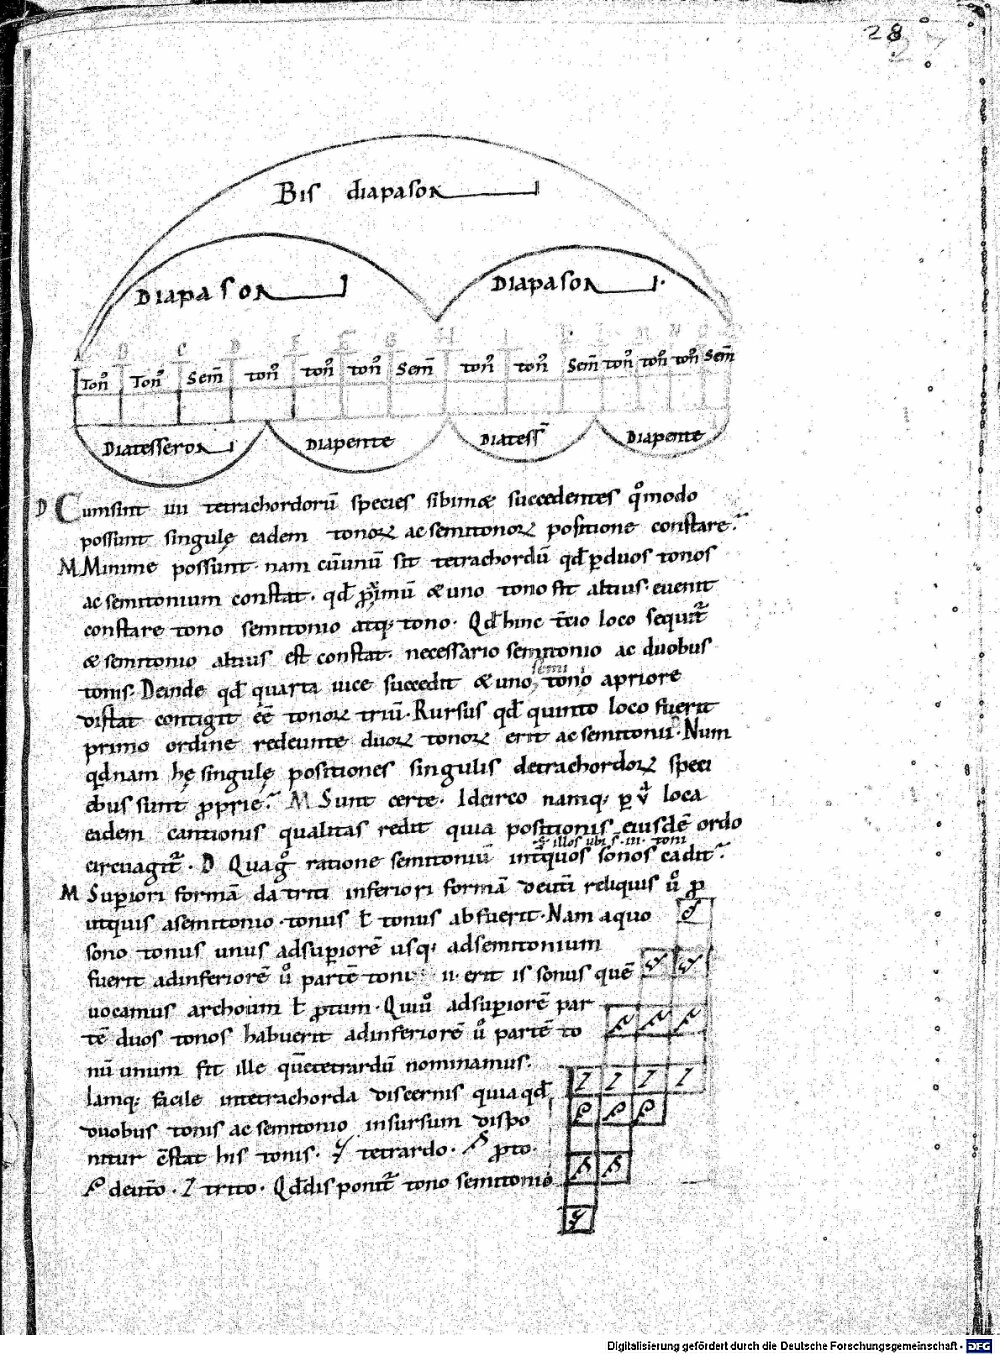 28
27
Bis diapason
Diapason Diapason
B C D E F G H I K L M N O
Toñ Toñ Sem̄ toñ toñ toñ Sem̄ toñ toñ Sem̄ toñ toñ toñ Sem̄
Diatesseron Diapente Diatess̄ Diapente
D Cumsint uii tetrachordorū species sibimæ succedentes qōmodo
possunt singulę eadem tonoꝝ ac semitonoꝝ positione constare.
M Minime possunt. nam cūunū sit tetrachordū qd̄ ꝑduos tonos
ac semitonium constat. qd̄ pͥmū & uno tono sit altius. euenit
constare tono semitonio atq; tono. Qd̄ hinc t̄cio loco sequit᷑
& semitonio altius est constat. necessario semitonio ac duobus
semi
tonis. Deinde qd̄ quarta uice succedit & uno tono apriore
distat contigit ēē tonoꝝ triū. Rursus qd̄ quinto loco fuerit
primo ordine redeunte duoꝝ tonoꝝ erit ac semitonii. Num
qd̄nam hę singulę positiones singulis detrachordoꝝ speci
ebus sunt ꝓprię. M Sunt certe. Idcirco namq; ꝑ v loca
eadem cantionis qualitas redit quia positionis eiusdē ordo
illos ubi s. iii. toni
circuagit᷑. D Qua gͦ ratione semitoniū int̄quos sonos cadit.
M Suꝑiori formā da triti inferiori formā deut̄i reliquis ū ꝓ
utquis asemitonio tonus ł tonus abfuerit. Nam aquo
sono tonus unus adsuꝑiorē usq; adsemitonium
fuerit adinferiorē ū partē toni ii. erit is sonus quē
uocamus archoum ł ꝓtum. Quiū adsuꝑiorē par
tē duos tonos habuerit adinferiorē ū partē to
nū unum sit ille quē tetrardū nominamus.
Iamq; facile intetrachorda discernis quia qd̄
duobus tonis ac semitonio insursum dispo
nitur c̄stat his tonis. tetrardo. ꝓto.
deut̄o. I trito. Qd̄ disponit᷑ tono semitonio
I I I I
Digitalisierung gefördert durch die Deutsche Forschungsgemeinschaft - DFG